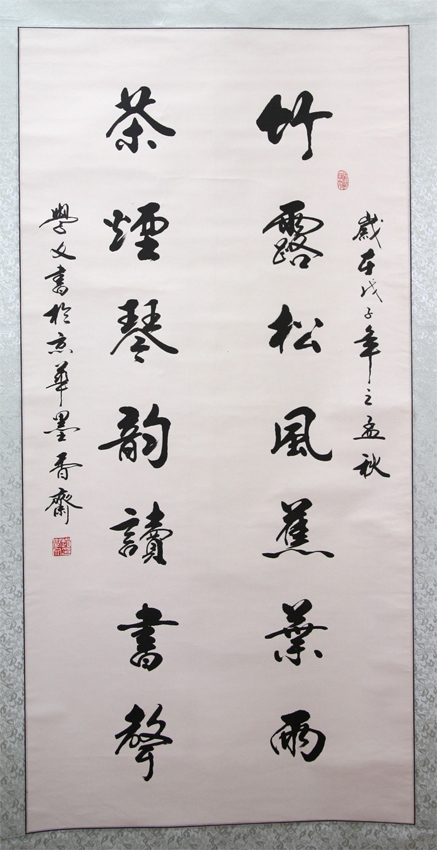 歲在戊子年之孟秋
竹露松風蕉葉雨
茶煙琴韵讀書聲
學文書於京華墨香齋